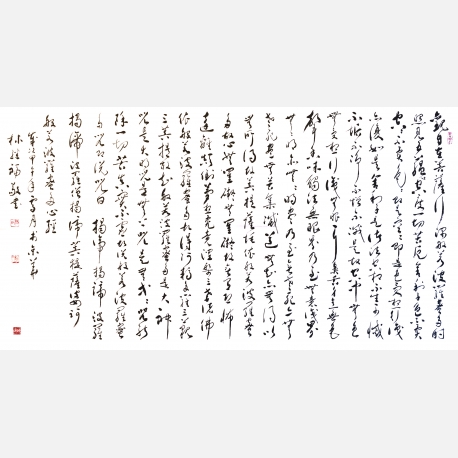 觀自在菩薩行深般若波羅蜜多時
照見五蘊皆空度一切苦厄舍利子色不異
空空不異色色即是空空即是色受想行識
亦復如是舍利子是諸法空相不生不滅
不垢不淨不增不減是故空中無色
無受想行識無眼耳鼻舌身意無色
聲香味觸法無眼界乃至無意識界
無無明亦無無明盡乃至無老死亦無
老死盡無苦集滅道無智亦無得以
無所得故菩提薩埵依般若波羅蜜
多故心無罣礙無罣礙故無有恐怖
遠離顛倒夢想究竟涅槃三世諸佛
依般若波羅蜜多故得阿耨多羅三藐
三菩提故知般若波羅蜜多是大神
咒是大明咒是無上咒是無等等咒能
除一切苦真實不虛故說般若波羅蜜
多咒即說咒曰 揭諦 揭諦 波羅
揭諦波羅僧揭諦菩提薩婆訶
般若波羅蜜多心經
歲次甲午年
林 敬書